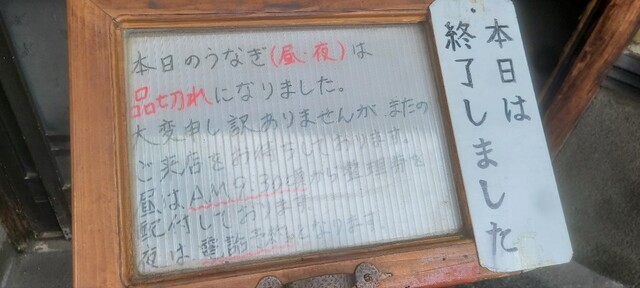 本日のうなぎ(昼・夜)は
品切れになりました。
大変申し訳ありませんが、またの
ご来店をお待ちしております。
昼はAM9:30頃から整理券を
配付しております。
夜は電話予約となります。
本日は
終了しました